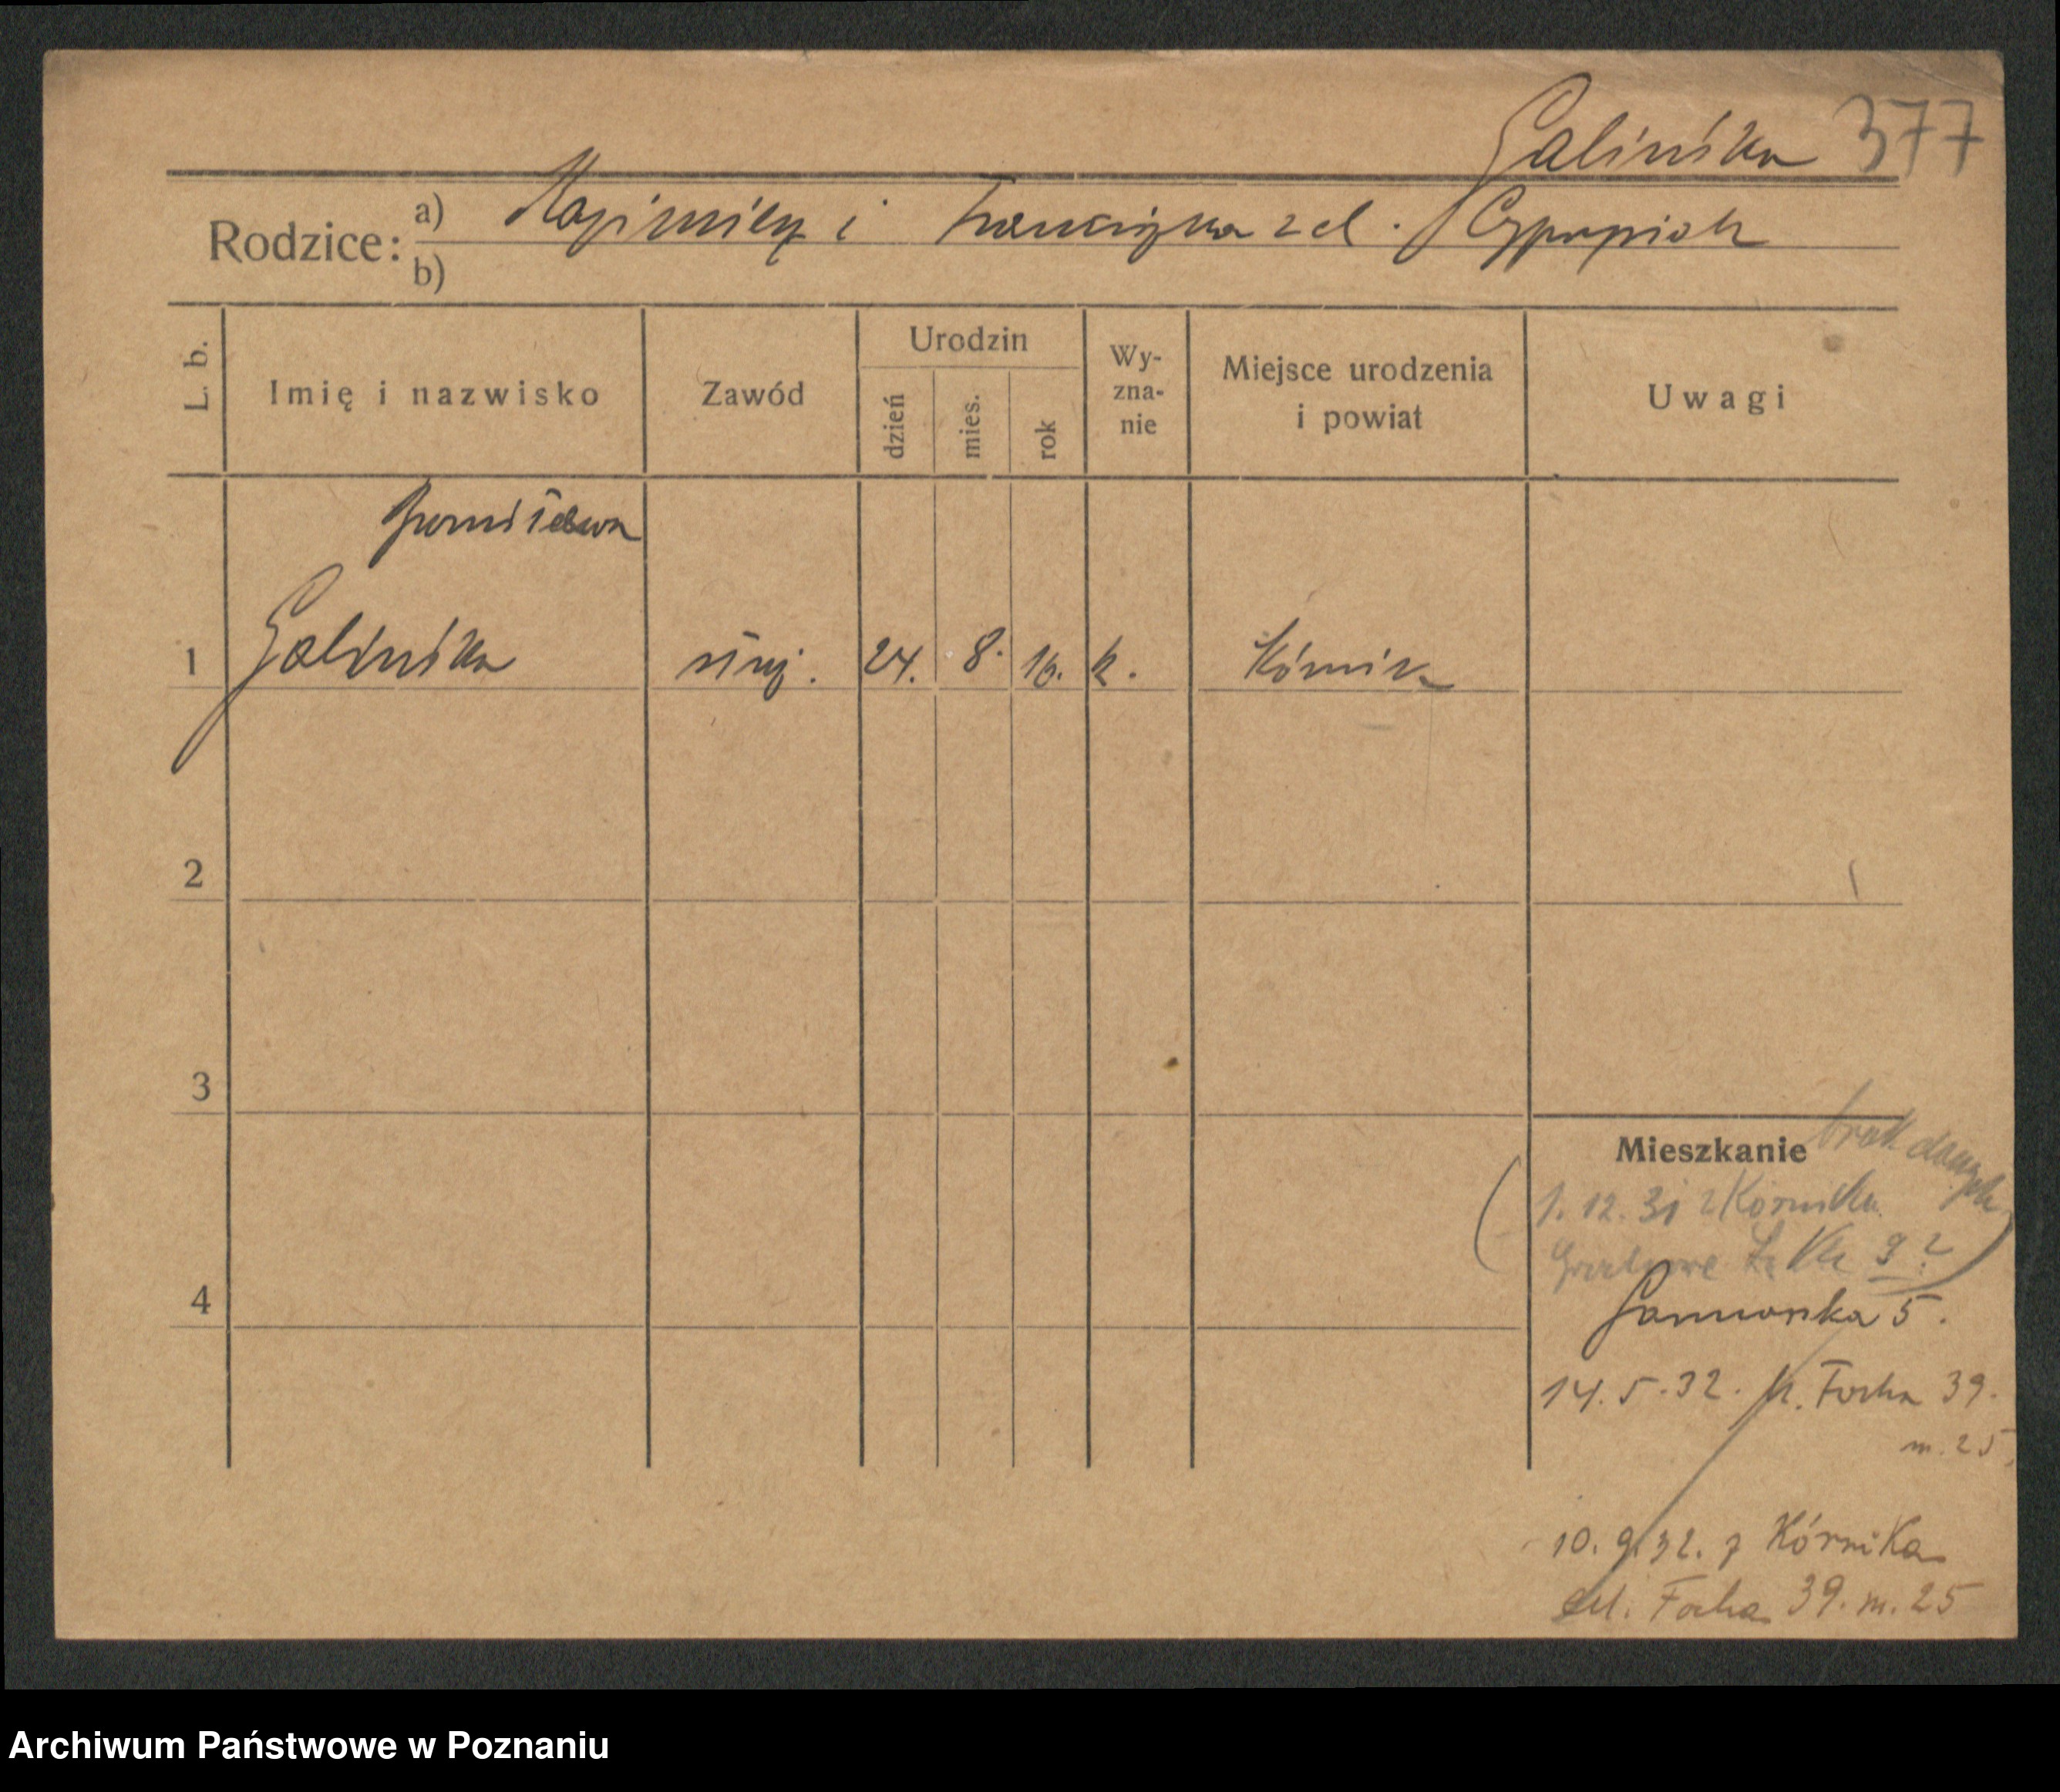 Galińska 377
Rodzice: a) Kazimierz i Franciszka z d.
b)
L. b.
Imię i nazwisko
Zawód
Urodzin
dzień
mies.
rok
Wy-
zna-
nie
Miejsce urodzenia
i powiat
Uwagi
1 Galińska służ. 24. 8. 16. k. Kórnik
2
3
4
Mieszkanie
brak
1. 12. 31 z Kórnika
9?
5.
14. 5. 32. M. Focha 39.
m. 25
10. 9. 32. z Kórnika
Focha 39. m. 25
Archiwum Państwowe w Poznaniu